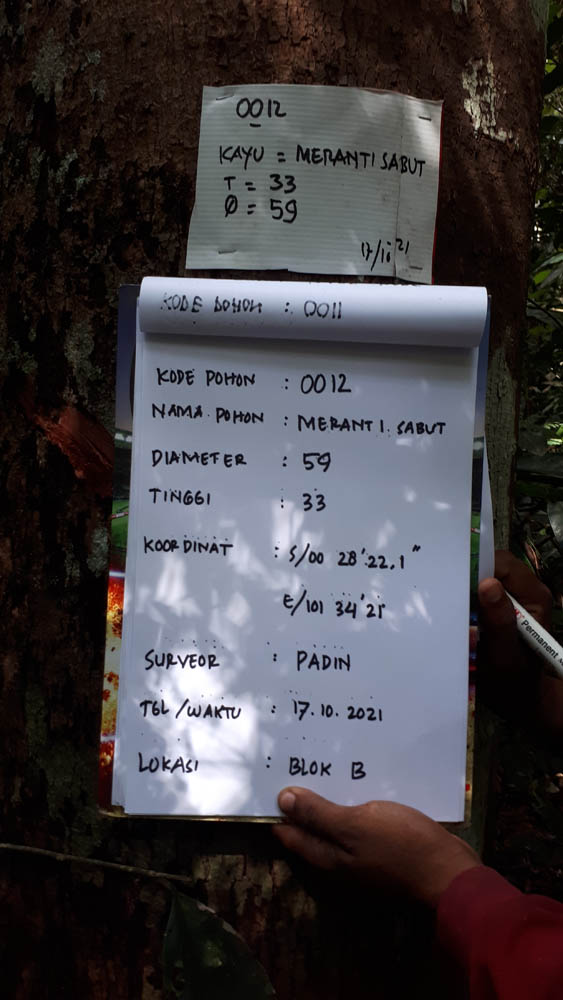 0012
KAYU = MERANTI SABUT
T = 33
Ø = 59
17/10 21
KODE POHON : 0011
KODE POHON : 0012
NAMA POHON : MERANTI SABUT
DIAMETER : 59
TINGGI : 33
KOORDINAT : S/00 28'.22,1"
E/101 34'21"
SURVEOR : PADIN
TGL/WAKTU : 17.10.2021
LOKASI : BLOK B
Permanent